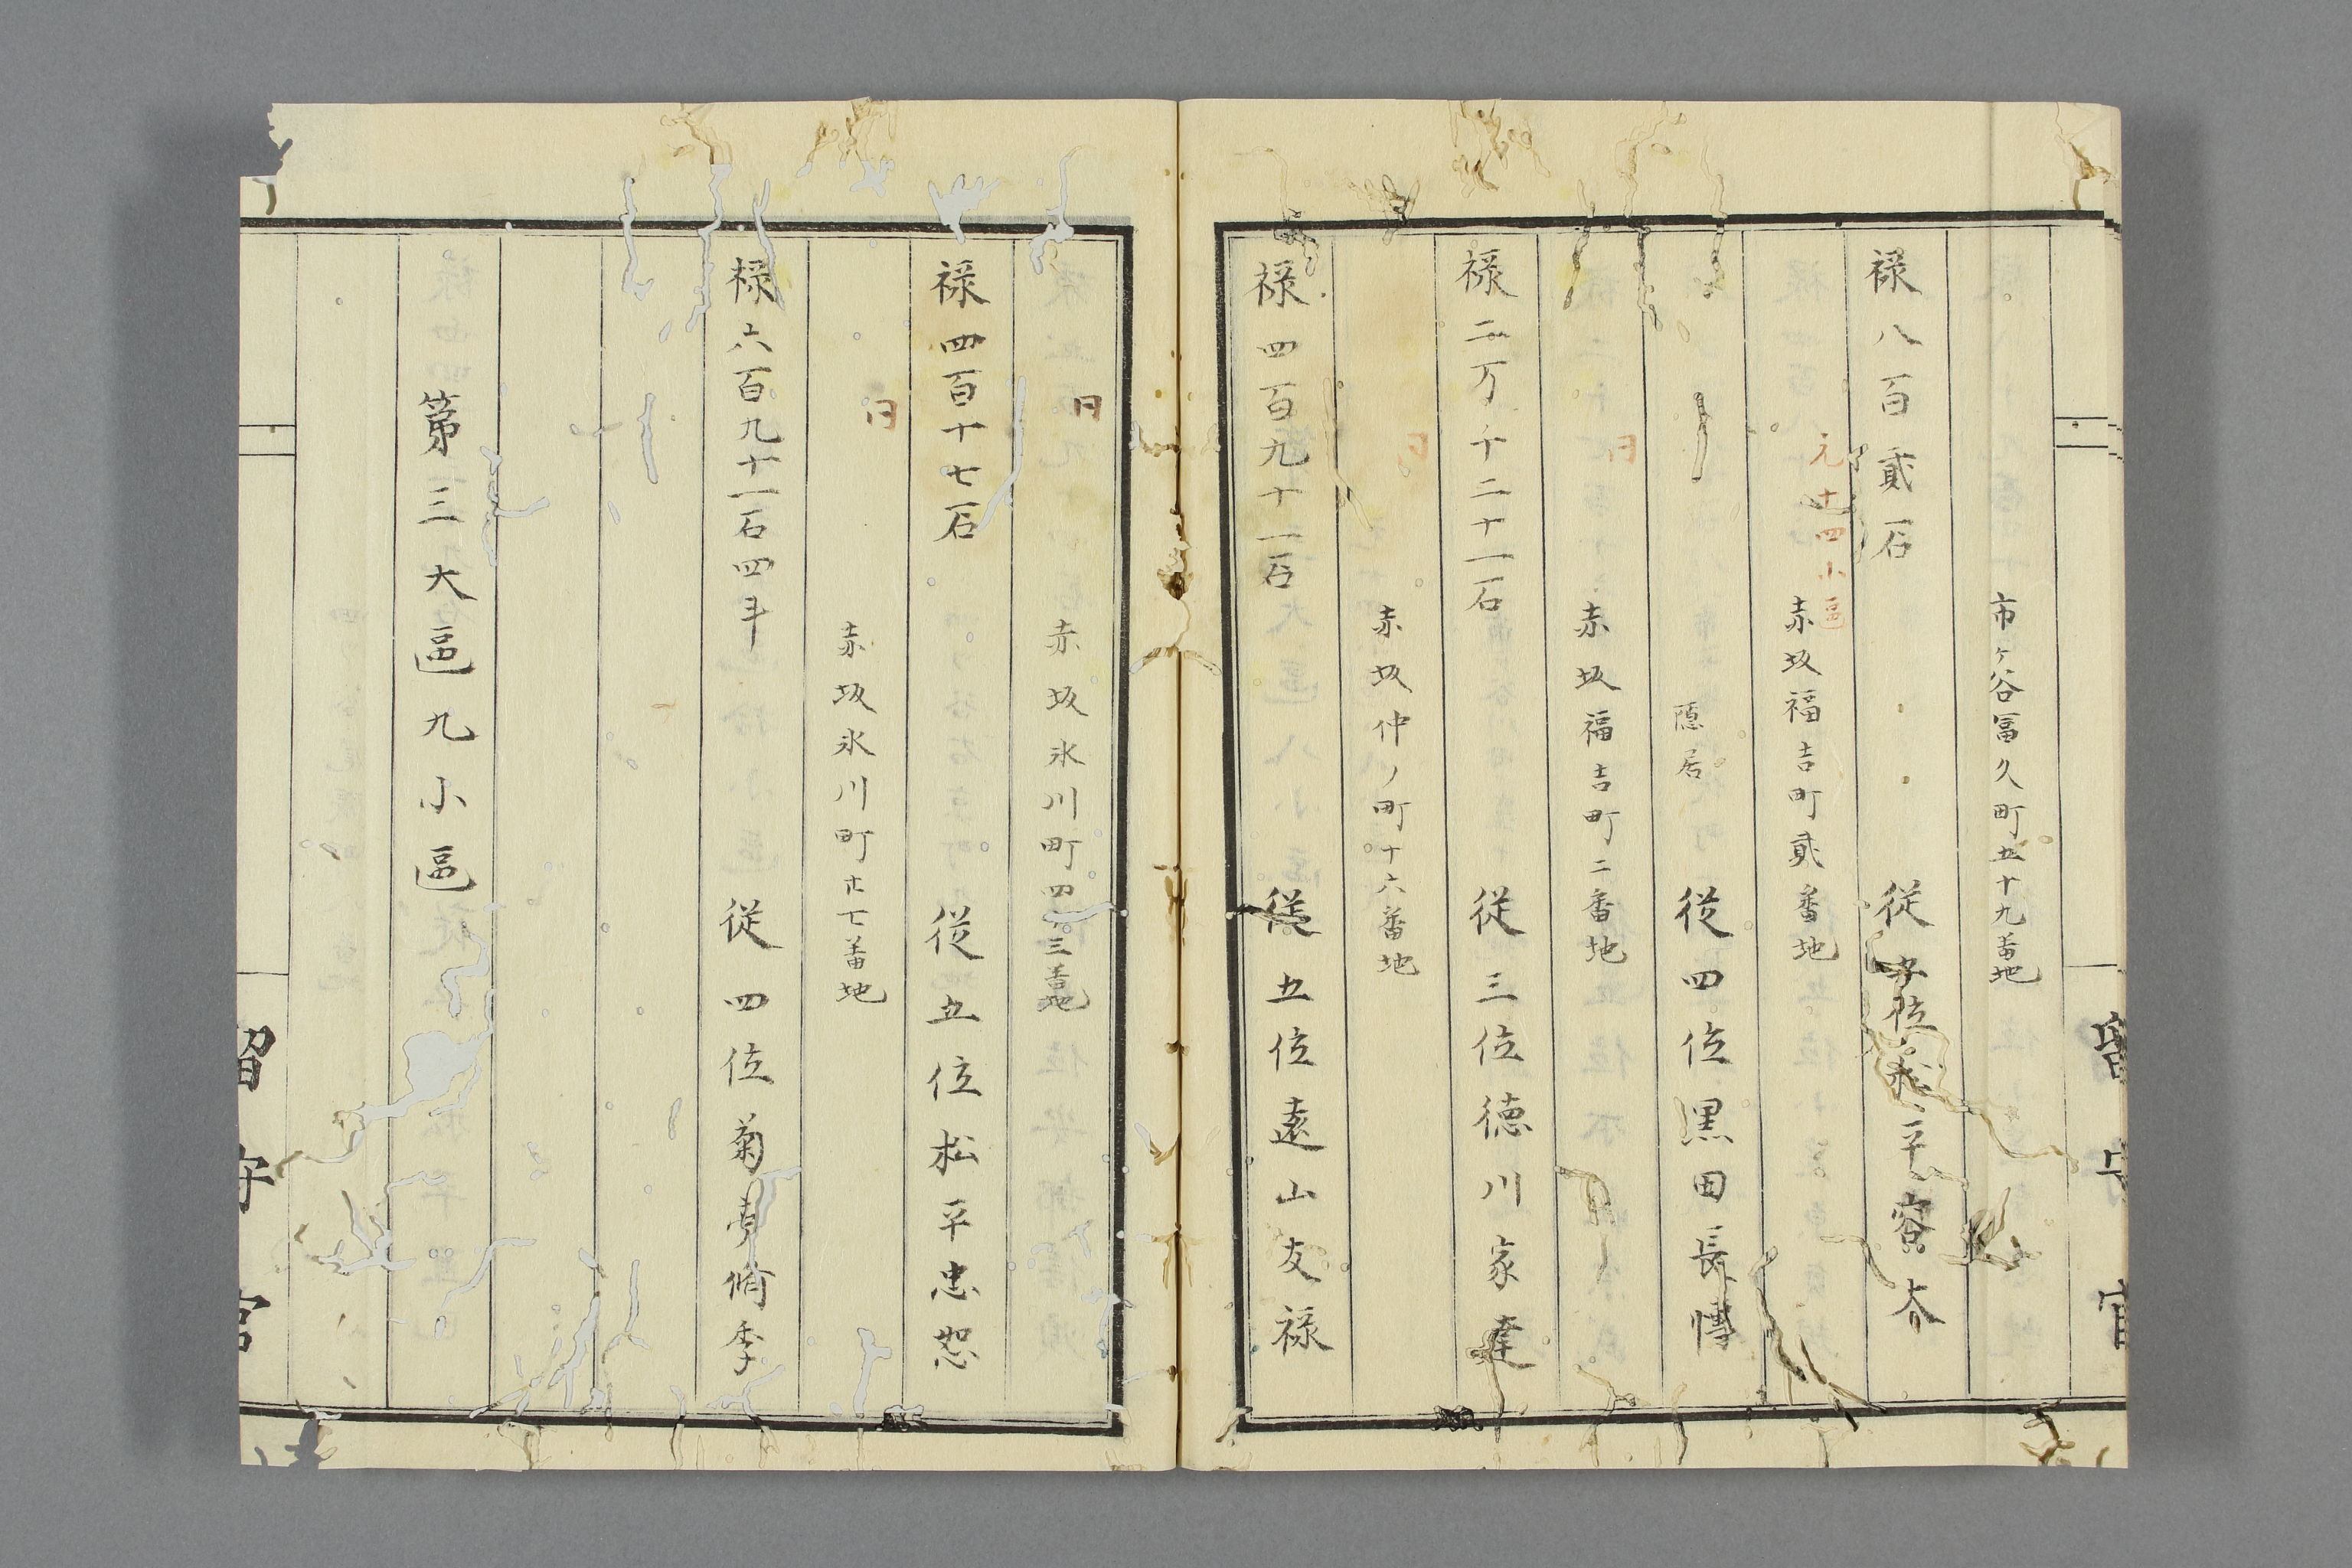 市ヶ谷冨久町五十九番地
禄八百貳石
従五位松平容大
元十四小區
赤坂福吉町貳番地
隠居
従四位黒田長愽
同
赤坂福吉町二番地
禄二万千二十一石
従三位徳川家達
同
赤坂仲ノ町十六番地
禄四百九十一石
従五位遠山友禄
同
赤坂氷川町四十三番地
禄四百十七石
従五位松平忠恕
同
赤坂氷川町廿七番地
禄六百九十一石四斗
従四位菊亭脩季
第三大區九小區
留守官